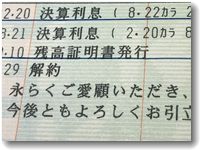 2-20 決算利息 ( 8-22カラ 2
8-21 決算利息 ( 2-20カラ 8
-10 残高証明書発行
29 解約
永らくご愛顧いただき、
今後ともよろしくお引立